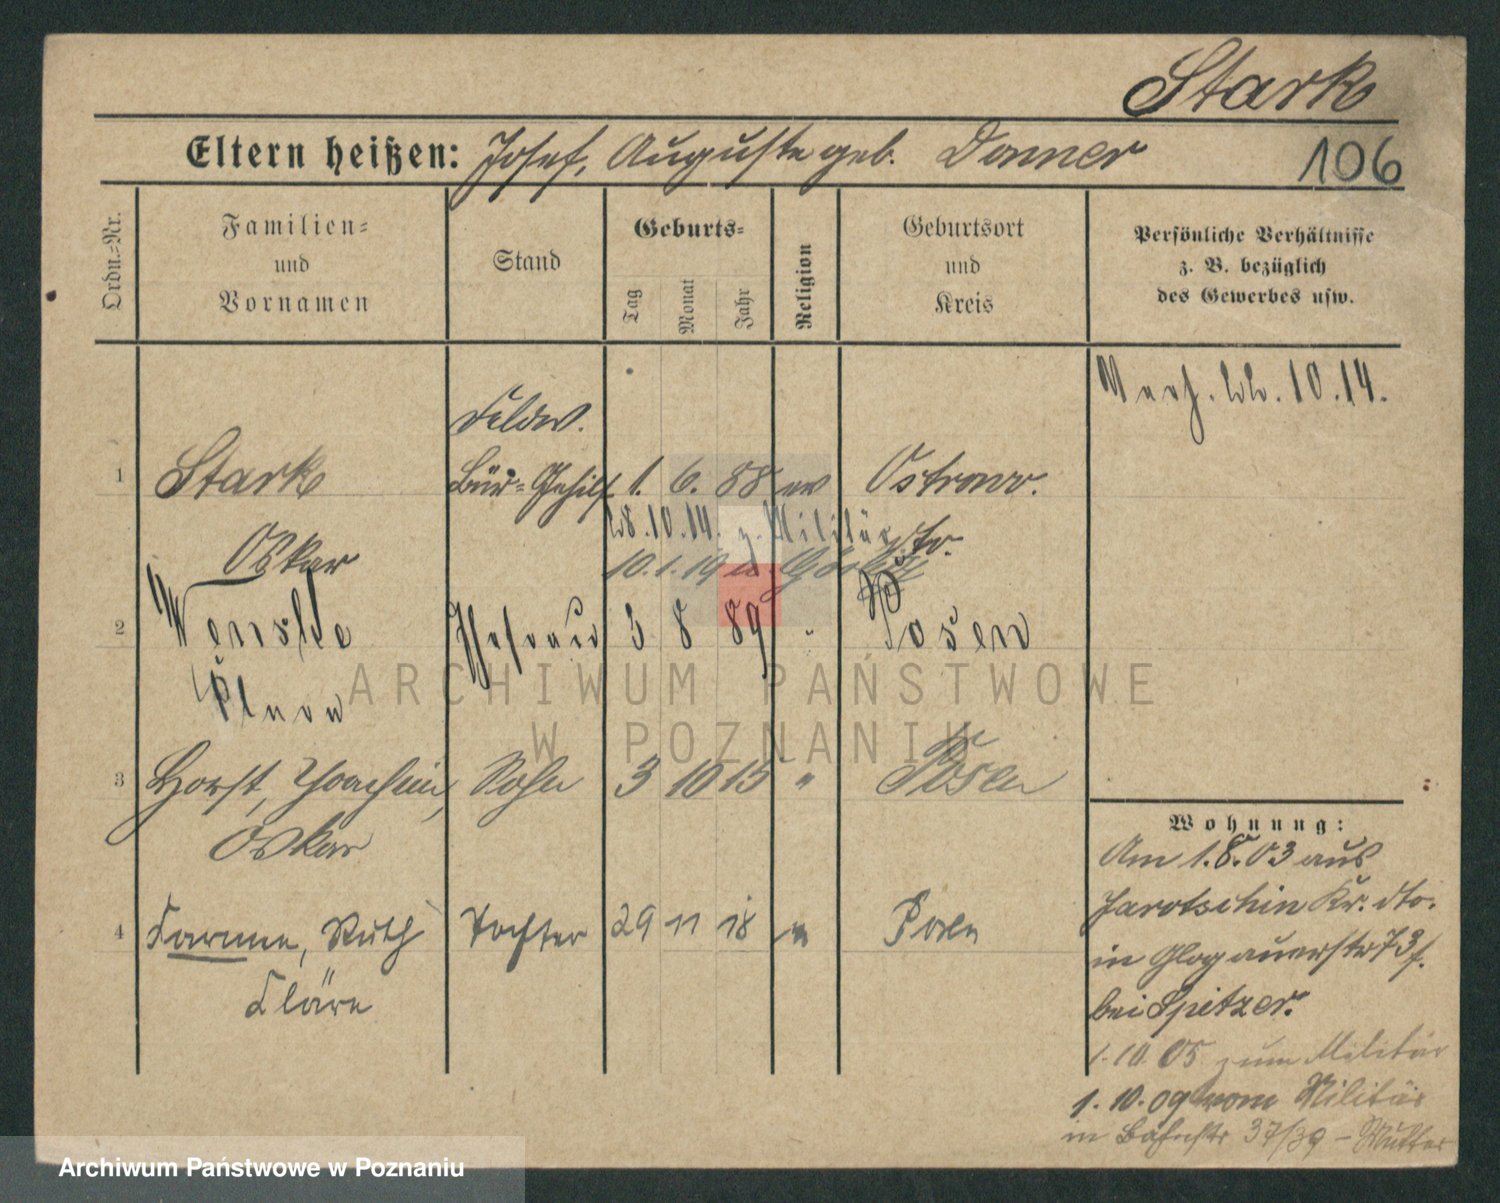 Stark
Eltern heißen: Josef, Auguste geb. Donner
106
Ordn.=Nr.
Familien= und Vornamen
Stand
Geburts=
Tag Monat Jahr
Religion
Geburtsort und Kreis
Persönliche Verhältnisse z. B. bezüglich des Gewerbes usw.
10.14.
Feldw.
1 Stark Bür=Gehilf. 1. 6. 88 ev Ostrowo.
Oskar 10.14. z. Militär dto.
10.1.19 v. Görlitz
2 Ehefrau 3 8 89 " Posen
3 Horst, Joachim, Sohn 3 10 15 " Posen
Oskar
4 Ruth Tochter 29 11 18 " Posen
Kläre
Wohnung:
Am 1.8.03 aus
Jarotschin Kr. dto.
in Glogauerstr 73 f.
bei Spitzer.
1.10.05 zum Militär
1.10.09 vom Militär
in 37/39 – Mutter
ARCHIWUM PAŃSTWOWE
W POZNANIU
Archiwum Państwowe w Poznaniu